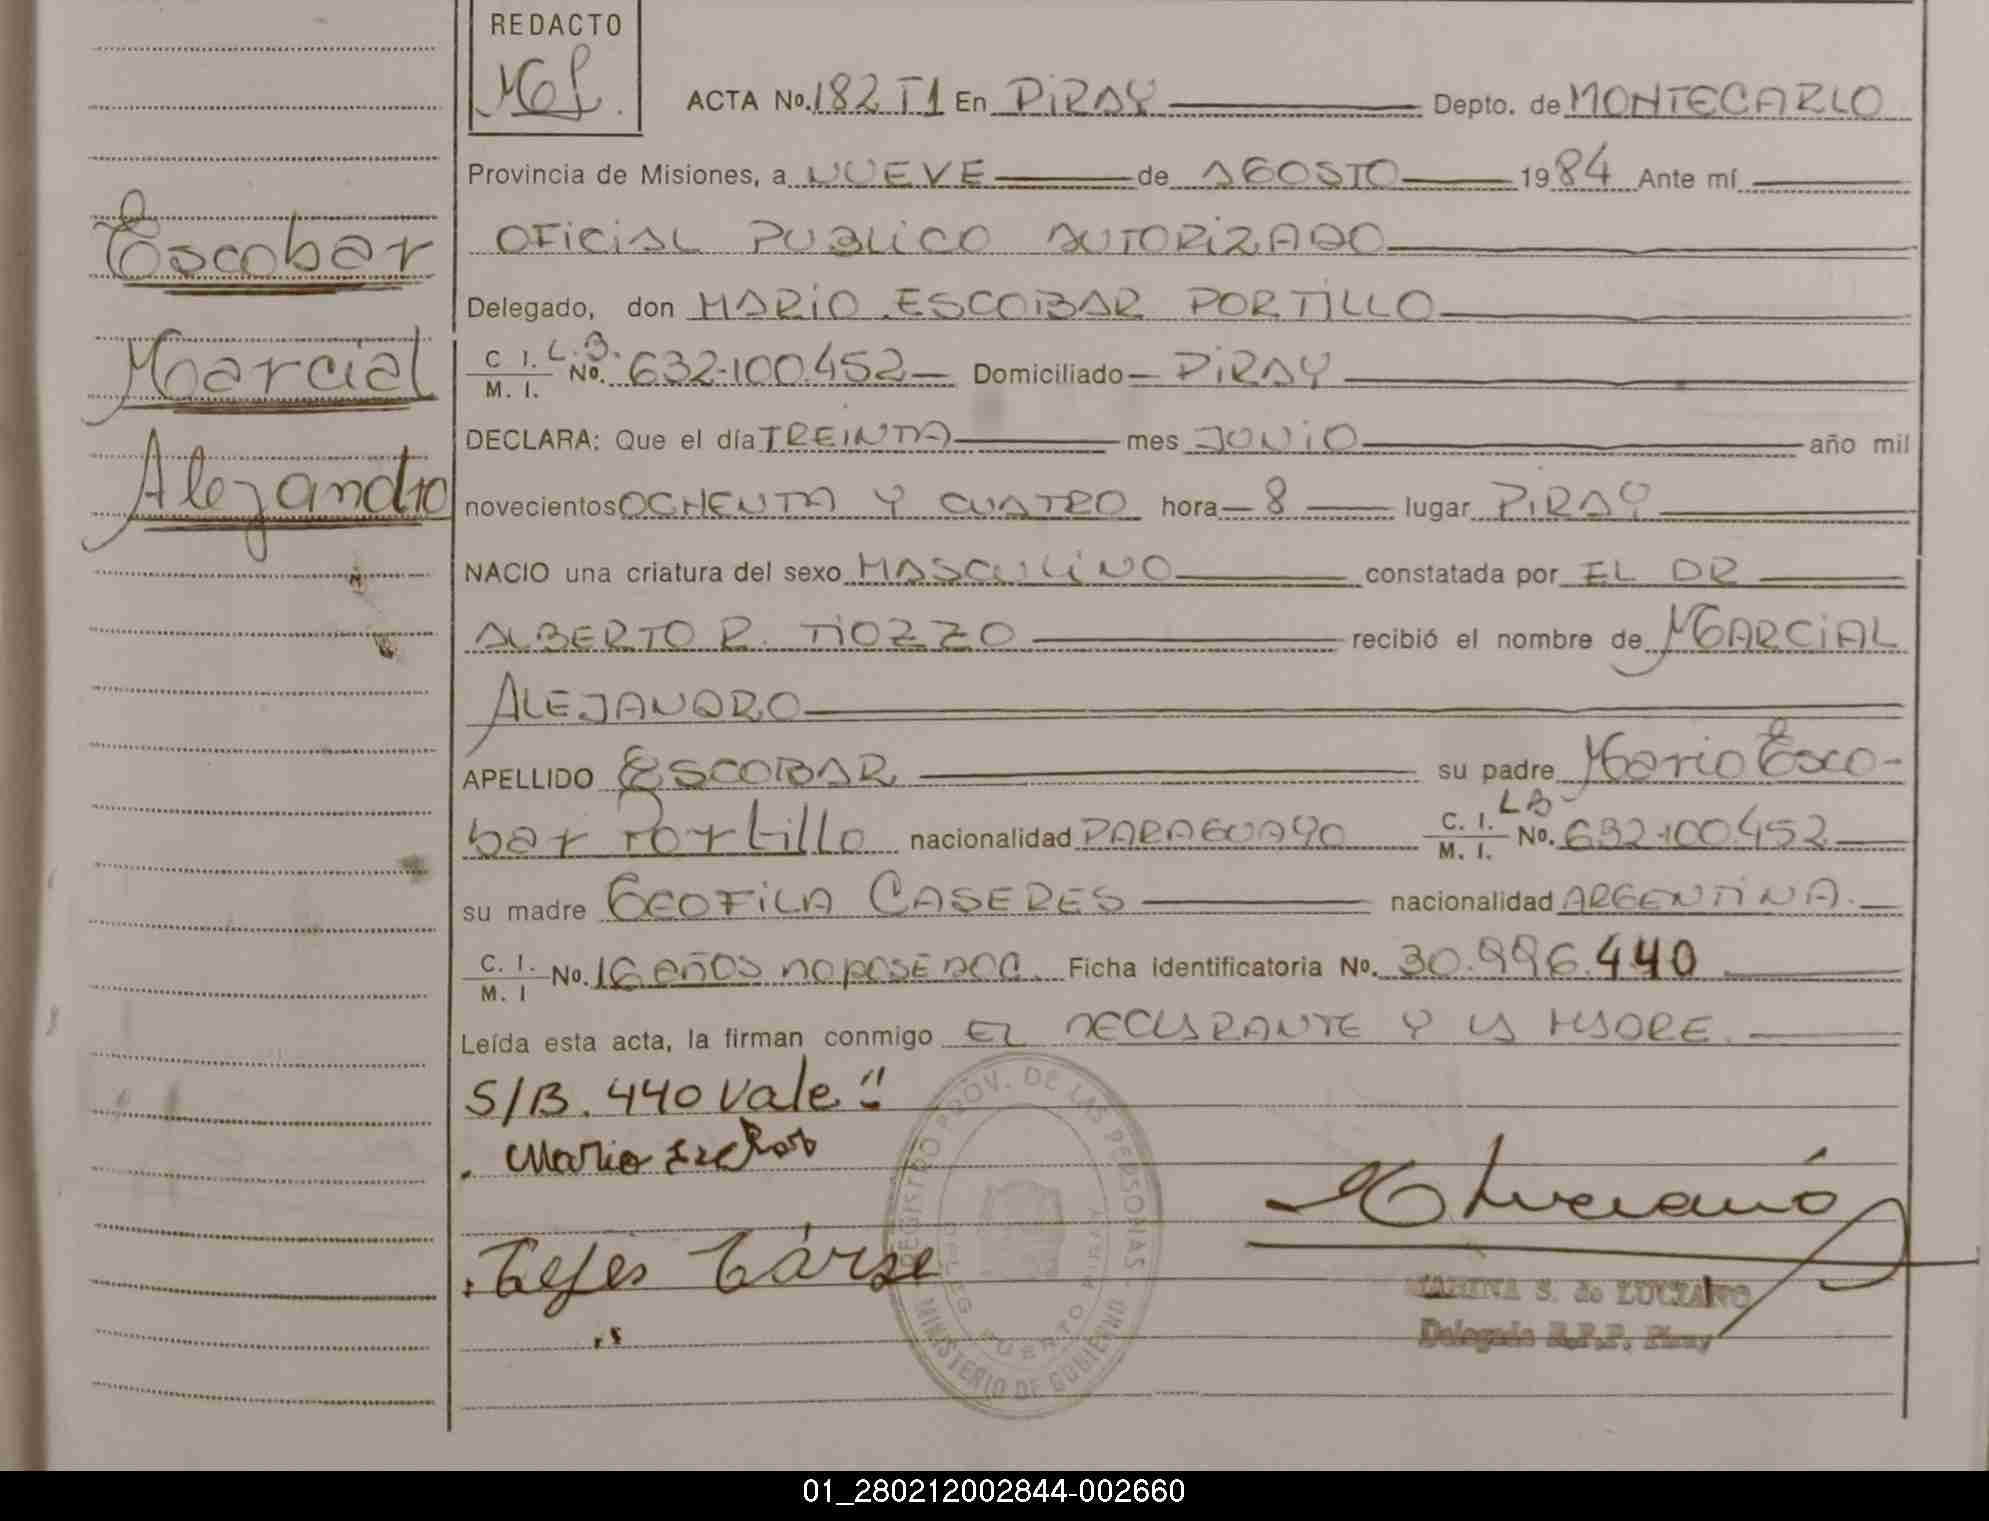 REDACTO
ACTA No. 182 T1 En PIRAY Depto. de MONTECARLO
Provincia de Misiones, a NUEVE de AGOSTO 1984 Ante mí
OFICIAL PUBLICO AUTORIZADO
Escobar
Delegado, don MARIO ESCOBAR PORTILLO
Marcial
C. I. L.B.
M. I. No. 632-100.452 Domiciliado PIRAY
DECLARA: Que el día TREINTA mes JUNIO año mil
Alejandro
novecientos OCHENTA Y CUATRO hora 8 lugar PIRAY
NACIO una criatura del sexo MASCULINO constatada por EL DR
ALBERTO R. TIOZZO recibió el nombre de MARCIAL
ALEJANDRO
APELLIDO ESCOBAR su padre Mario Esco-
bar Portillo nacionalidad PARAGUAYO C. I. LB M. I. No. 632-100.452
su madre TEOFILA CASERES nacionalidad ARGENTINA.
C. I. M. I No. 16 años no posé doc. Ficha identificatoria No. 30.996.440
Leída esta acta, la firman conmigo EL DECLARANTE Y LA MADRE.
S/B. 440 Vale"
Mario
REGISTRO PROV. DE LAS PERSONAS
MINISTERIO DE GOBIERNO
PUERTO PIRAY
MARINA S. de LUCIANO
Delegada R.P.P. Piray
01_280212002844-002660